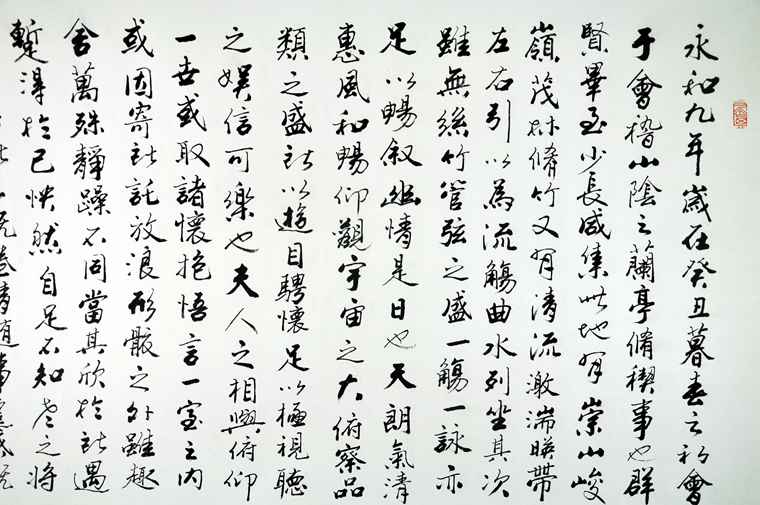 永和九年歲在癸丑暮春之初會
于會稽山陰之蘭亭脩禊事也群
賢畢至少長咸集此地有崇山峻
嶺茂林脩竹又有清流激湍暎帶
左右引以為流觴曲水列坐其次
雖無絲竹管弦之盛一觴一詠亦
足以暢叙幽情是日也天朗氣清
惠風和暢仰觀宇宙之大俯察品
類之盛所以遊目騁懷足以極視聽
之娛信可樂也夫人之相與俯仰
一世或取諸懷抱悟言一室之內
或因寄所託放浪形骸之外雖趣
舍萬殊靜躁不同當其欣於所遇
蹔得於己怏然自足不知老之將